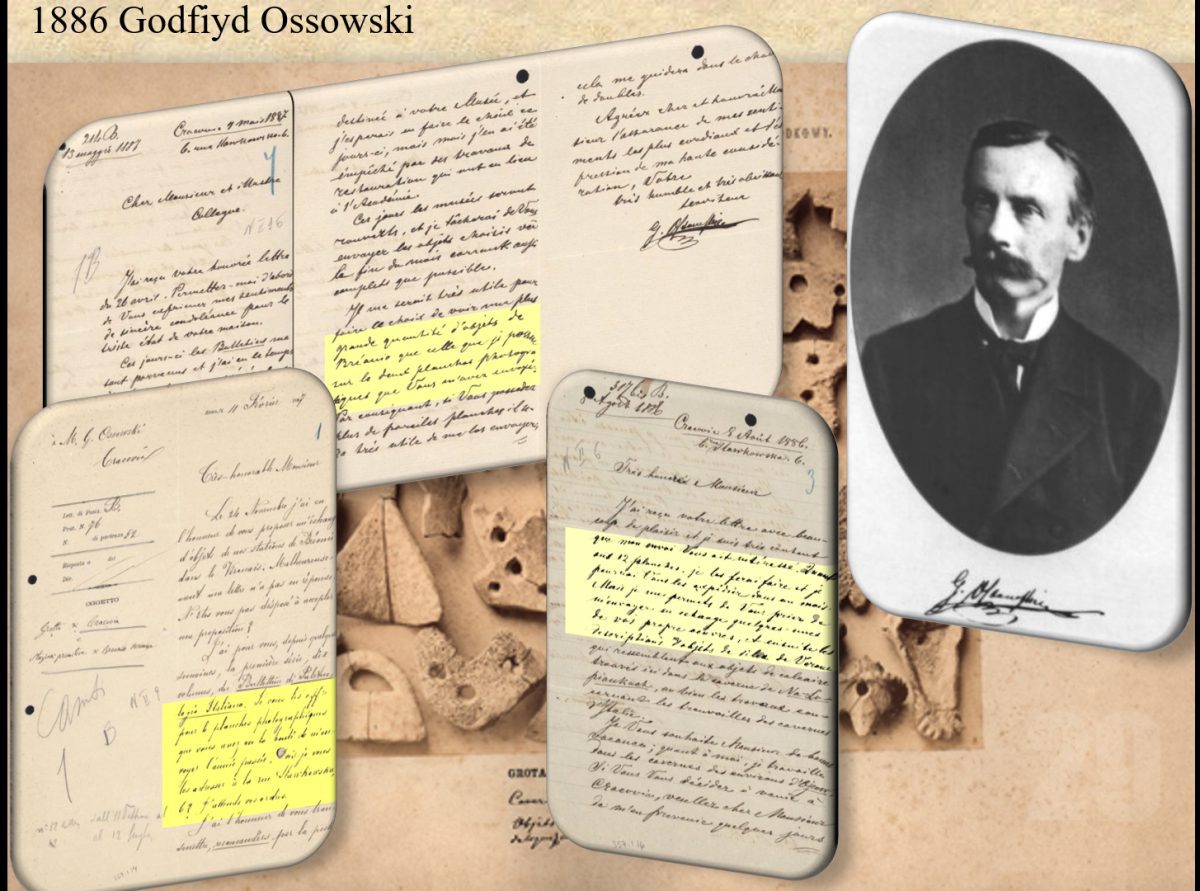 1886 Godfiyd Ossowski
214 B.
13 maggio 1887
Cracovie 9 mai 1887
6. rue Sławkowska 6.
4
Cher Monsieur et Illustre
Collègue.
N II 16
J'ai reçu votre honorée lettre
du 26 avril. Permettez-moi d'abord
de Vous exprimer mes sentiments
de sincère condoléance pour le
triste état de votre maison.
Ces jours-ci les Bulletins me
sont parvenus et j'ai eu le temps
destiné à votre Musée, et
j'esperais en faire le choix ces
jours-ci, mais moi j'en ai été
empêché par les travaux de
restauration qui ont eu lieu
à l'Académie.
Ces jours les musées seront
rouverts, et je tâcherai de Vous
envoyer les objets choisis vers
la fin du mois courrant aussi
complets que possible.
Il me serait très utile pour
faire le choix de voir une plus
grande quantité d'objets de
Bréonio que celle que je possède
sur les deux planches photogra
phiques que Vous m'avez envoyé.
Par conséquent, si Vous possedez
plus de pareilles planches il se-
ra très utile de me les envoyer,
cela me guidera dans le choix
de doubles.
Agréez cher et honoré Mon
sieur l'assurance de mes senti
ments les plus cordiaux et l'ex
pression de ma haute considé-
ration, Votre
très humble et très obéissant
serviteur
G. Ossowski
DKOWY.
11 Février
1
à M. G. Ossowski
Cracovie
Très-honorable Monsieur
Le 24 Novembre j'ai eu
l'honneur de vous proposer un échange
d'objets de nos stations de Bréonio
dans le Véronais. Malheureuse-
ment ma lettre n'a pas eu réponse.
N'êtes vous pas disposé à accepter
ma proposition?
J'ai pour vous, depuis quelques
semaines, la première série, dix
volumes, du Bullettino di Paletno
logia Italiana. Je vous les offre
pour les planches photographiques
que vous avez eu la bonté de m'en
voyer l'année passée. Dois je vous
les adresser à la rue Sławkowska
6? J'attends vos ordres.
J'ai l'honneur de vous trans
mettre, recomandées par la poste
Prot. N. 76
N. di partenza 52
Risposta a del
Div.
OGGETTO
N II 9
B
1
317 bis B.
Agosto 1886
Cracovie 2 Août 1886.
6. Sławkowska 6.
3
N II 6
Très honoré Monsieur
J'ai reçu votre lettre avec beau-
coup de plaisir et je suis très content
que mon envoi Vous ait intéressé. Quant
aux 12 planches, je les ferai faire et je
pourrai Vous les expédier dans un mois.
Mais je me permets de Vous prier de
m'envoyer en échange quelques-unes
de vos propres œuvres, et ensuite les
descriptions d'objets de silex de Verone
qui ressemblent aux objets de calcaire
trouvés ici dans la caverne de
ou bien les travaux con-
cernant les trouvailles des cavernes
d'Italie.
Je Vous souhaite Monsieur de bonnes
vacances; quant à moi, je travaille
dans les cavernes des environs d'Ojców.
Si Vous Vous décidez à venir à
Cracovie, veuillez cher Monsieur
de m'en prévenir quelques jours
GROTA
Objets
G. Ossowski